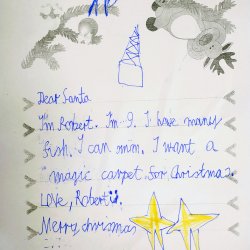 Dear Santa
I'm Robert. I'm 9. I have many
fish. I can swim. I want a
magic carpet for Christmas.
LOVE, Robert
Merry chrismas